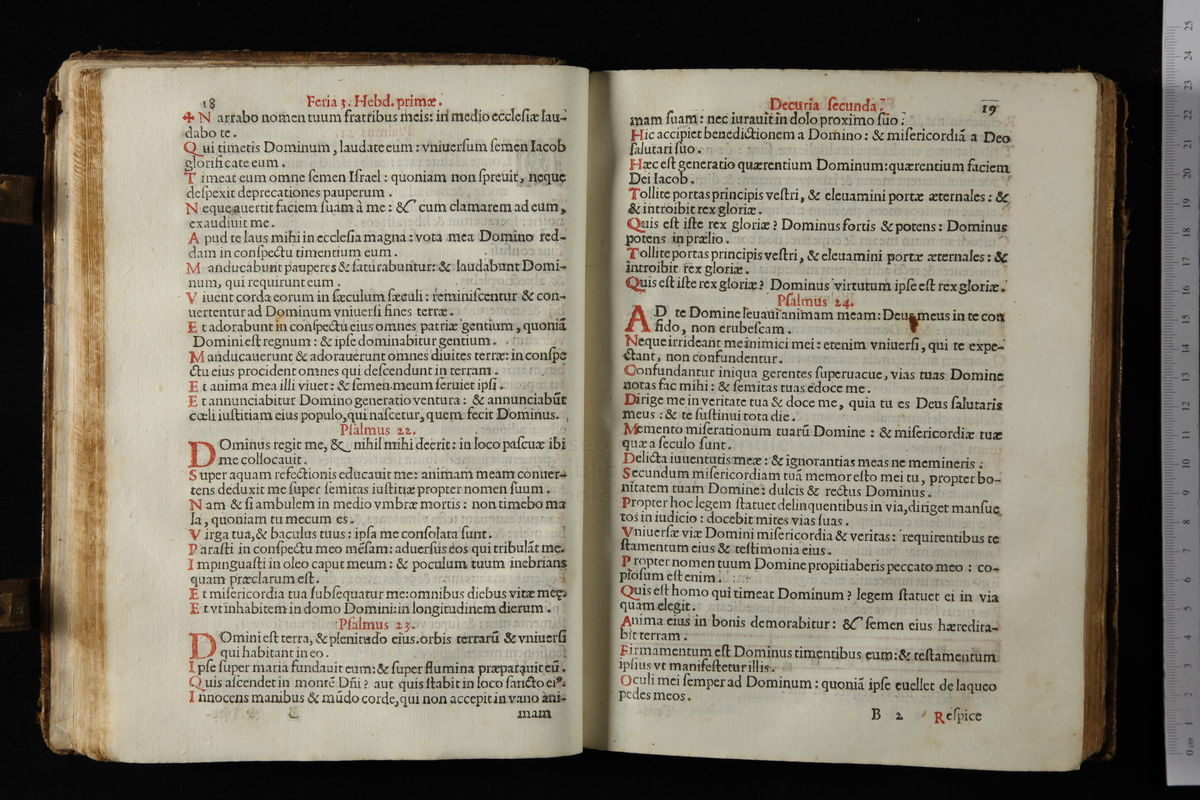 18
Feria 3. Hebd. primæ.
✠ N arrabo nomen tuum fratribus meis: in medio ecclesiæ lau-
dabo te.
Q ui timetis Dominum, laudate eum: vniuersum semen Iacob
glorificate eum.
T imeat eum omne semen Israel: quoniam non spreuit, neque
despexit deprecationes pauperum.
N eque auertit faciem suam à me: & cum clamarem ad eum,
exaudiuit me.
A pud te laus mihi in ecclesia magna: vota mea Domino red-
dam in conspectu timentium eum.
M anducabunt pauperes & saturabuntur: & laudabunt Domi-
num, qui requirunt eum.
V iuent corda eorum in sæculum sæculi: reminiscentur & con-
uertentur ad Dominum vniuersi fines terræ.
E t adorabunt in conspectu eius omnes patriæ gentium, quoniã
Domini est regnum: & ipse dominabitur gentium.
M anducauerunt & adorauerunt omnes diuites terræ: in conspe
ctu eius procident omnes qui descendunt in terram.
E t anima mea illi viuet: & semen meum seruiet ipsi.
E t annunciabitur Domino generatio ventura: & annunciabũt
cœli iustitiam eius populo, qui nascetur, quem fecit Dominus.
Psalmus 22.
DOminus regit me, & nihil mihi deerit: in loco pascuæ ibi
me collocauit.
S uper aquam refectionis educauit me: animam meam conuer-
tens deduxit me super semitas iustitiæ propter nomen suum.
N am & si ambulem in medio vmbræ mortis: non timebo ma
la, quoniam tu mecum es.
V irga tua, & baculus tuus: ipsa me consolata sunt.
P arasti in conspectu meo mẽsam: aduersus eos qui tribulãt me.
I mpinguasti in oleo caput meum: & poculum tuum inebrians
quam præclarum est.
E t misericordia tua subsequatur me: omnibus diebus vitæ meę.
E t vt inhabitem in domo Domini: in longitudinem dierum.
Psalmus 23.
DOmini est terra, & plenitudo eius. orbis terrarũ & vniuersi
qui habitant in eo.
I pse super maria fundauit eum: & super flumina præparauit eũ.
Q uis ascendet in montẽ Dñi? aut quis stabit in loco sancto ei⁹.
I nnocens manibus & mũdo corde, qui non accepit in vano ani-
mam
Decuria secunda.
19
mam suam: nec iurauit in dolo proximo suo.
Hic accipiet benedictionem a Domino: & misericordiã a Deo
salutari suo.
Hæc est generatio quærentium Dominum: quærentium faciem
Dei Iacob.
Tollite portas principis vestri, & eleuamini portæ æternales: &
& introibit rex gloriæ.
Quis est iste rex gloriæ? Dominus fortis & potens: Dominus
potens in prælio.
Tollite portas principis vestri, & eleuamini portæ æternales: &
introibit rex gloriæ.
Quis est iste rex gloriæ? Dominus virtutum ipse est rex gloriæ.
Psalmus 24.
AD te Domine leuaui animam meam: Deus meus in te con
fido, non erubescam.
Neque irrideant me inimici mei: etenim vniuersi, qui te expe-
ctant, non confundentur.
Confundantur iniqua gerentes superuacue, vias tuas Domine
notas fac mihi: & semitas tuas edoce me.
Dirige me in veritate tua & doce me, quia tu es Deus salutaris
meus: & te sustinui tota die.
Memento miserationum tuarũ Domine: & misericordiæ tuæ
quæ a seculo sunt.
Delicta iuuentutis meæ: & ignorantias meas ne memineris:
Secundum misericordiam tuã memor esto mei tu, propter bo-
nitatem tuam Domine: dulcis & rectus Dominus.
Propter hoc legem statuet delinquentibus in via, diriget mansue
tos in iudicio: docebit mites vias suas.
Vniuersæ viæ Domini misericordia & veritas: requirentibus te
stamentum eius & testimonia eius.
Propter nomen tuum Domine propitiaberis peccato meo: co-
piosum est enim.
Quis est homo qui timeat Dominum? legem statuet ei in via
quam elegit.
Anima eius in bonis demorabitur: & semen eius hæredita-
bit terram.
Firmamentum est Dominus timentibus eum: & testamentum
ipsius vt manifestetur illis.
Oculi mei semper ad Dominum: quoniã ipse euellet de laqueo
pedes meos.
B 2 Respice